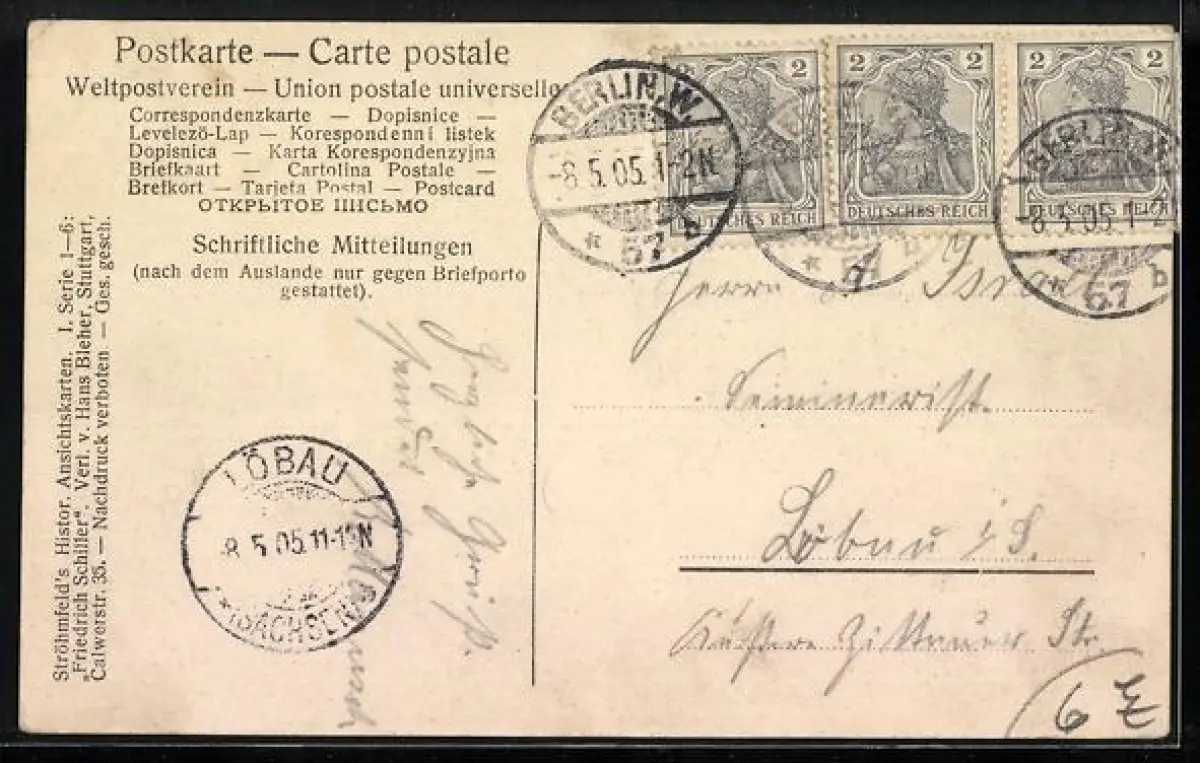 Postkarte — Carte postale
Weltpostverein — Union postale universelle
Correspondenzkarte — Dopisnice —
Levelező-Lap — Korespondenni listek
Dopisnica — Karta Korespondenzyjna
Briefkaart — Cartolina Postale —
Brefkort — Tarjeta Postal — Postcard
ОТКРЫТОЕ ПИСЬМО
Schriftliche Mitteilungen
(nach dem Auslande nur gegen Briefporto
gestattet).
Ströhmfeld's Histor. Ansichtskarten. I. Serie 1—6:
„Friedrich Schiller". Verl. v. Hans Bleher, Stuttgart,
Calwerstr. 35. — Nachdruck verboten. — Ges. gesch.
2 2
DEUTSCHES REICH
2 2
DEUTSCHES REICH
2 2
DEUTSCHES REICH
BERLIN, W.
-8.5.05.1-2N
* 57 b
BERLIN W
-8.5.05.1-2
* 57 b
Herrn
Seminarist
Löbau i/S.
Äußere Zittauer Str.
Herzliche Grüße
LÖBAU
-8.5.05.11-12N
*(SACHSEN)
6